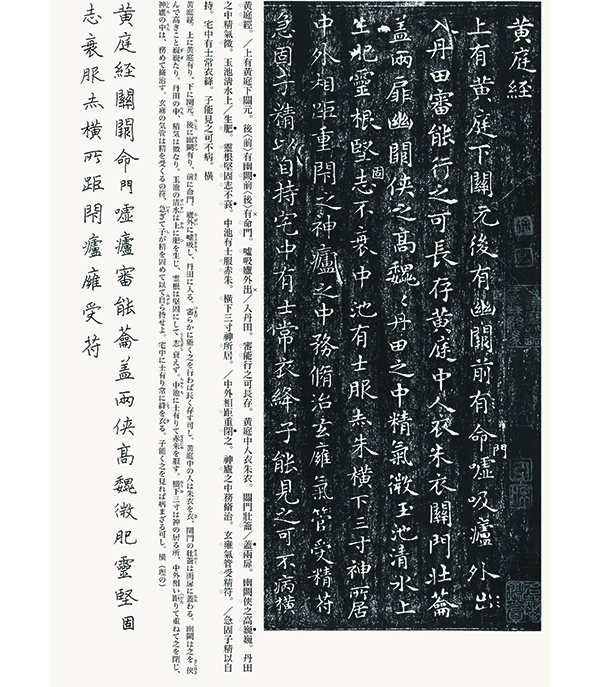 黄庭経
上有黄庭下關元後有幽闕前有命門噓吸廬外出
入丹田審能行之可長存黄庭中人衣朱衣關門壯籥
盖兩扉幽闕侠之高巍〻丹田之中精氣微玉池清水上
生肥靈根堅固志不衰中池有士服赤朱横下三寸神所居
中外相距重閇之神廬之中務脩治玄廱氣管受精符
急固子精以自持宅中有士常衣絳子能見之可不病横
黄庭経。／上有黄庭下關元。後（前）有幽闕前（後）有命門。噓吸廬外出／入丹田。審能行之可長存。黄庭中人衣朱衣。關門壯籥／蓋兩扉。幽闕俠之高巍巍。丹田
之中精氣微。玉池清水上／生肥。靈根堅固志不衰。中池有士服赤朱。横下三寸神所居。／中外相距重閉之。神廬之中務脩治。玄廱氣管受精符。／急固子精以自
持。宅中有士常衣絳。子能見之可不病。横
黄庭経。上に黄庭有り、下に関元。後に幽闕有り、前に命門。廬外に噓吸し、丹田に入る。審らかに能く之を行わば長く存す可し。黄庭中の人は朱衣を衣、関門の壮籥は両扉に蓋わる。幽闕は之を俠
んで高きこと巍巍たり。丹田の中、精気は微なり。玉池の清水は上に肥を生じ、霊根は堅固にして志衰えず。中池に士有りて赤朱を服す。横下三寸は神の居る所、中外相い距りて重ねて之を閉じ、
神廬の中は、務めて脩治す。玄廱の気管は精を受くるの符、急ぎて子が精を固めて以て自ら持せよ。宅中に士有り常に絳を衣る。子能く之を見れば病まざる可し。横（理の）
黄庭経關闕命門噓廬審能籥盖兩侠高巍微肥靈堅固
志衰服赤横所距閇廬廱受符